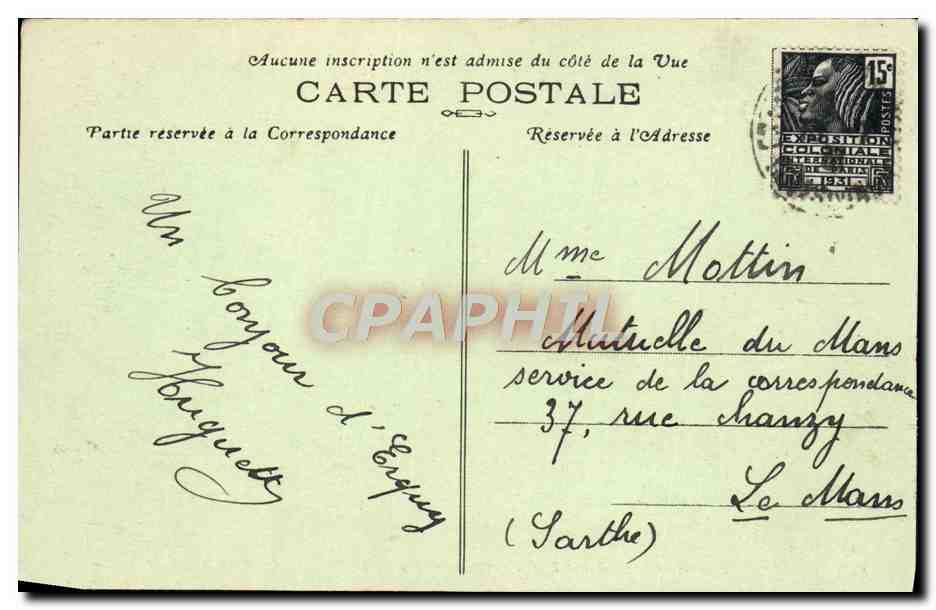 Aucune inscription n'est admise du côté de la Vue
CARTE POSTALE
Partie réservée à la Correspondance
Réservée à l'Adresse
15c
POSTES
EXPOSITION
COLONIALE
INTERNATIONALE
DE PARIS
1931
Un
bonjour d'Erquy
Huguette
Mme Mottin
Mutuelle du Mans
service de la correspondance
37, rue Chanzy
Le Mans
(Sarthe)
CPAPHIL